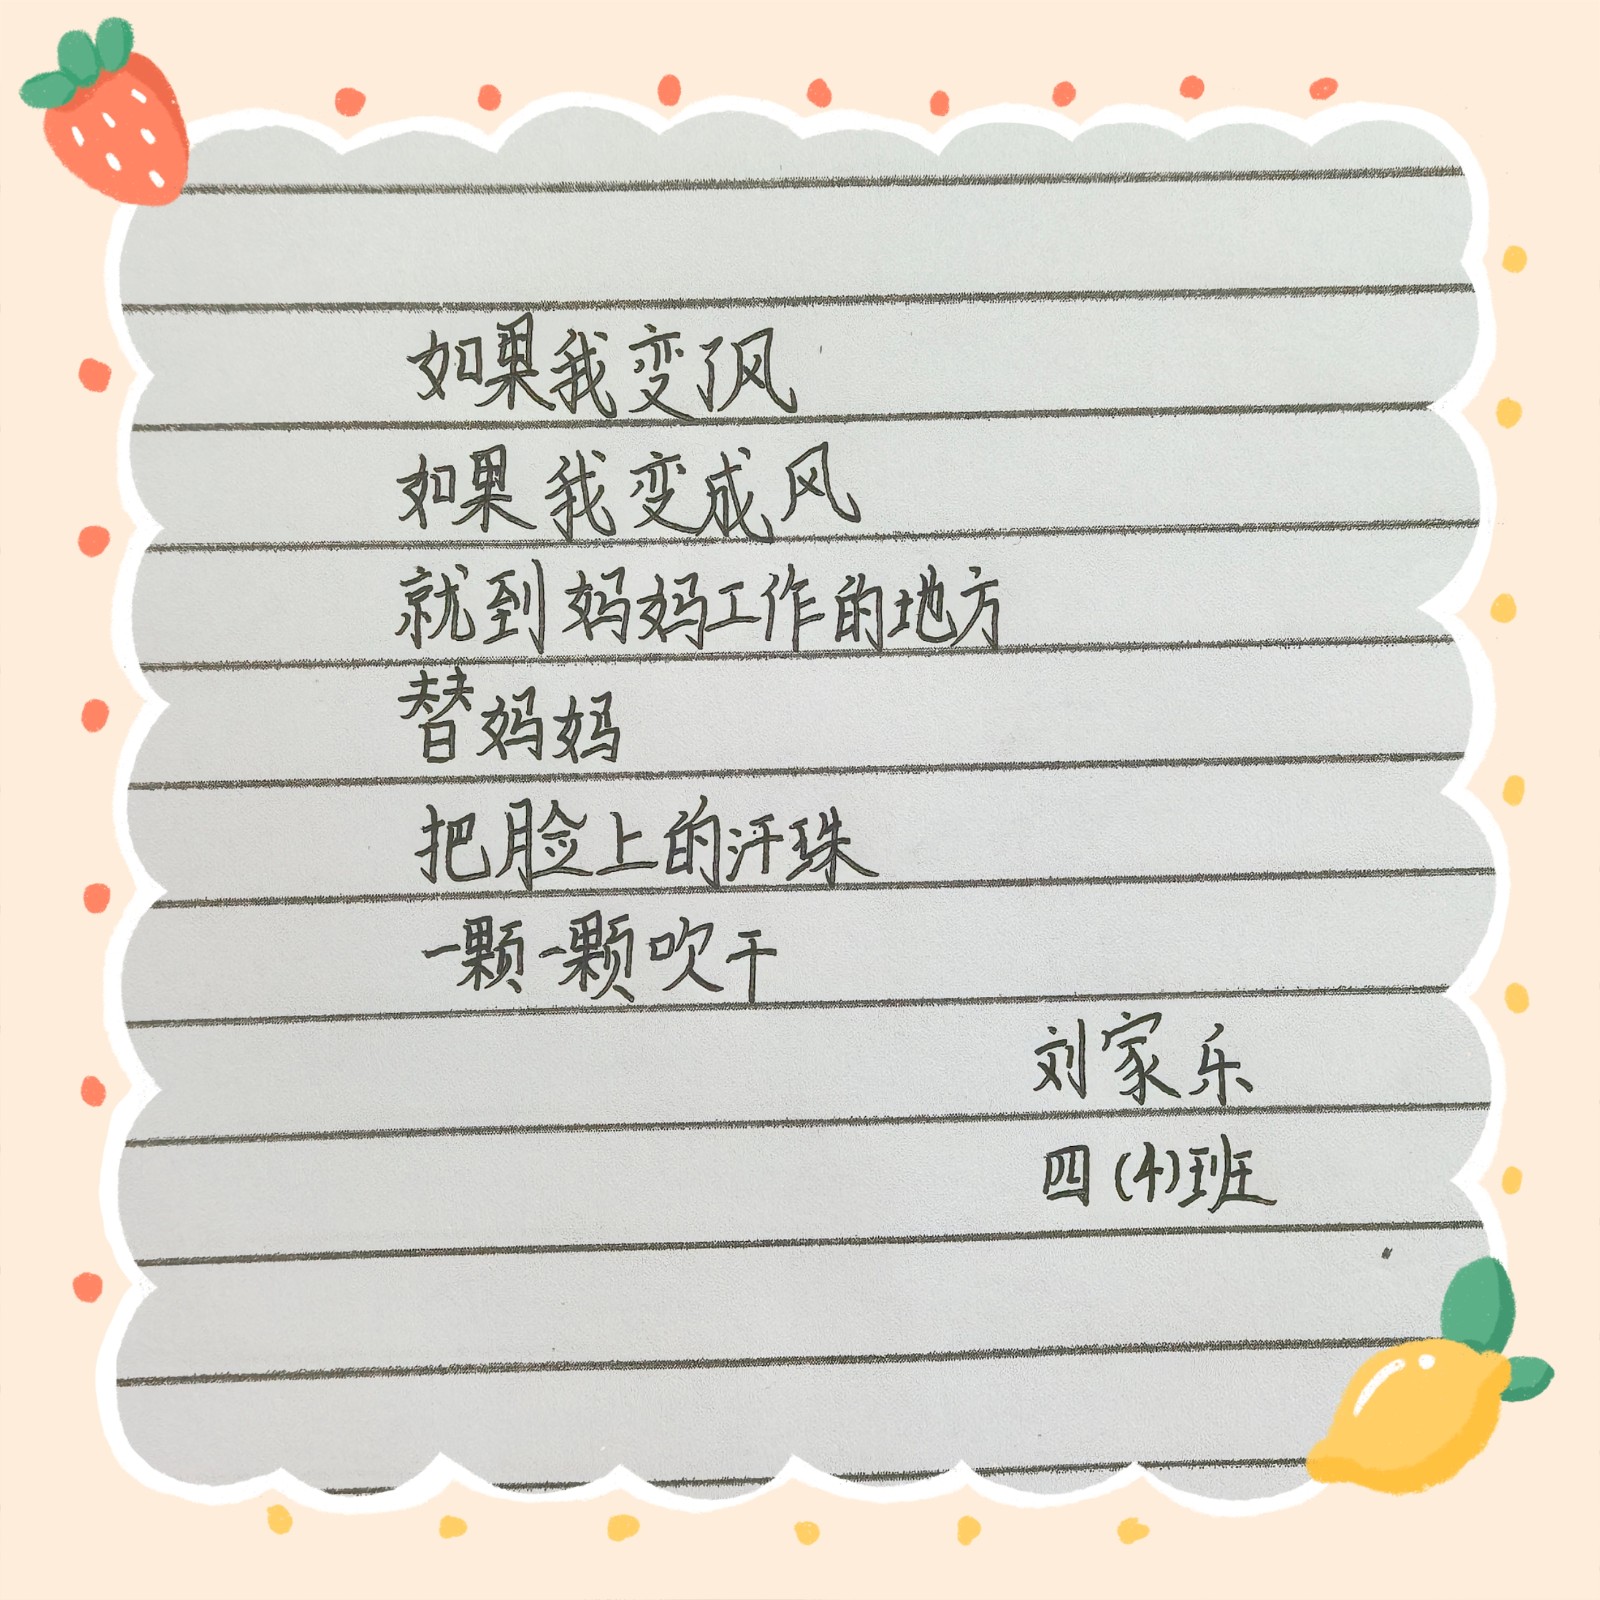 如果我变了风
如果我变成风
就到妈妈工作的地方
替妈妈
把脸上的汗珠
一颗一颗吹干
刘家乐
四(4)班